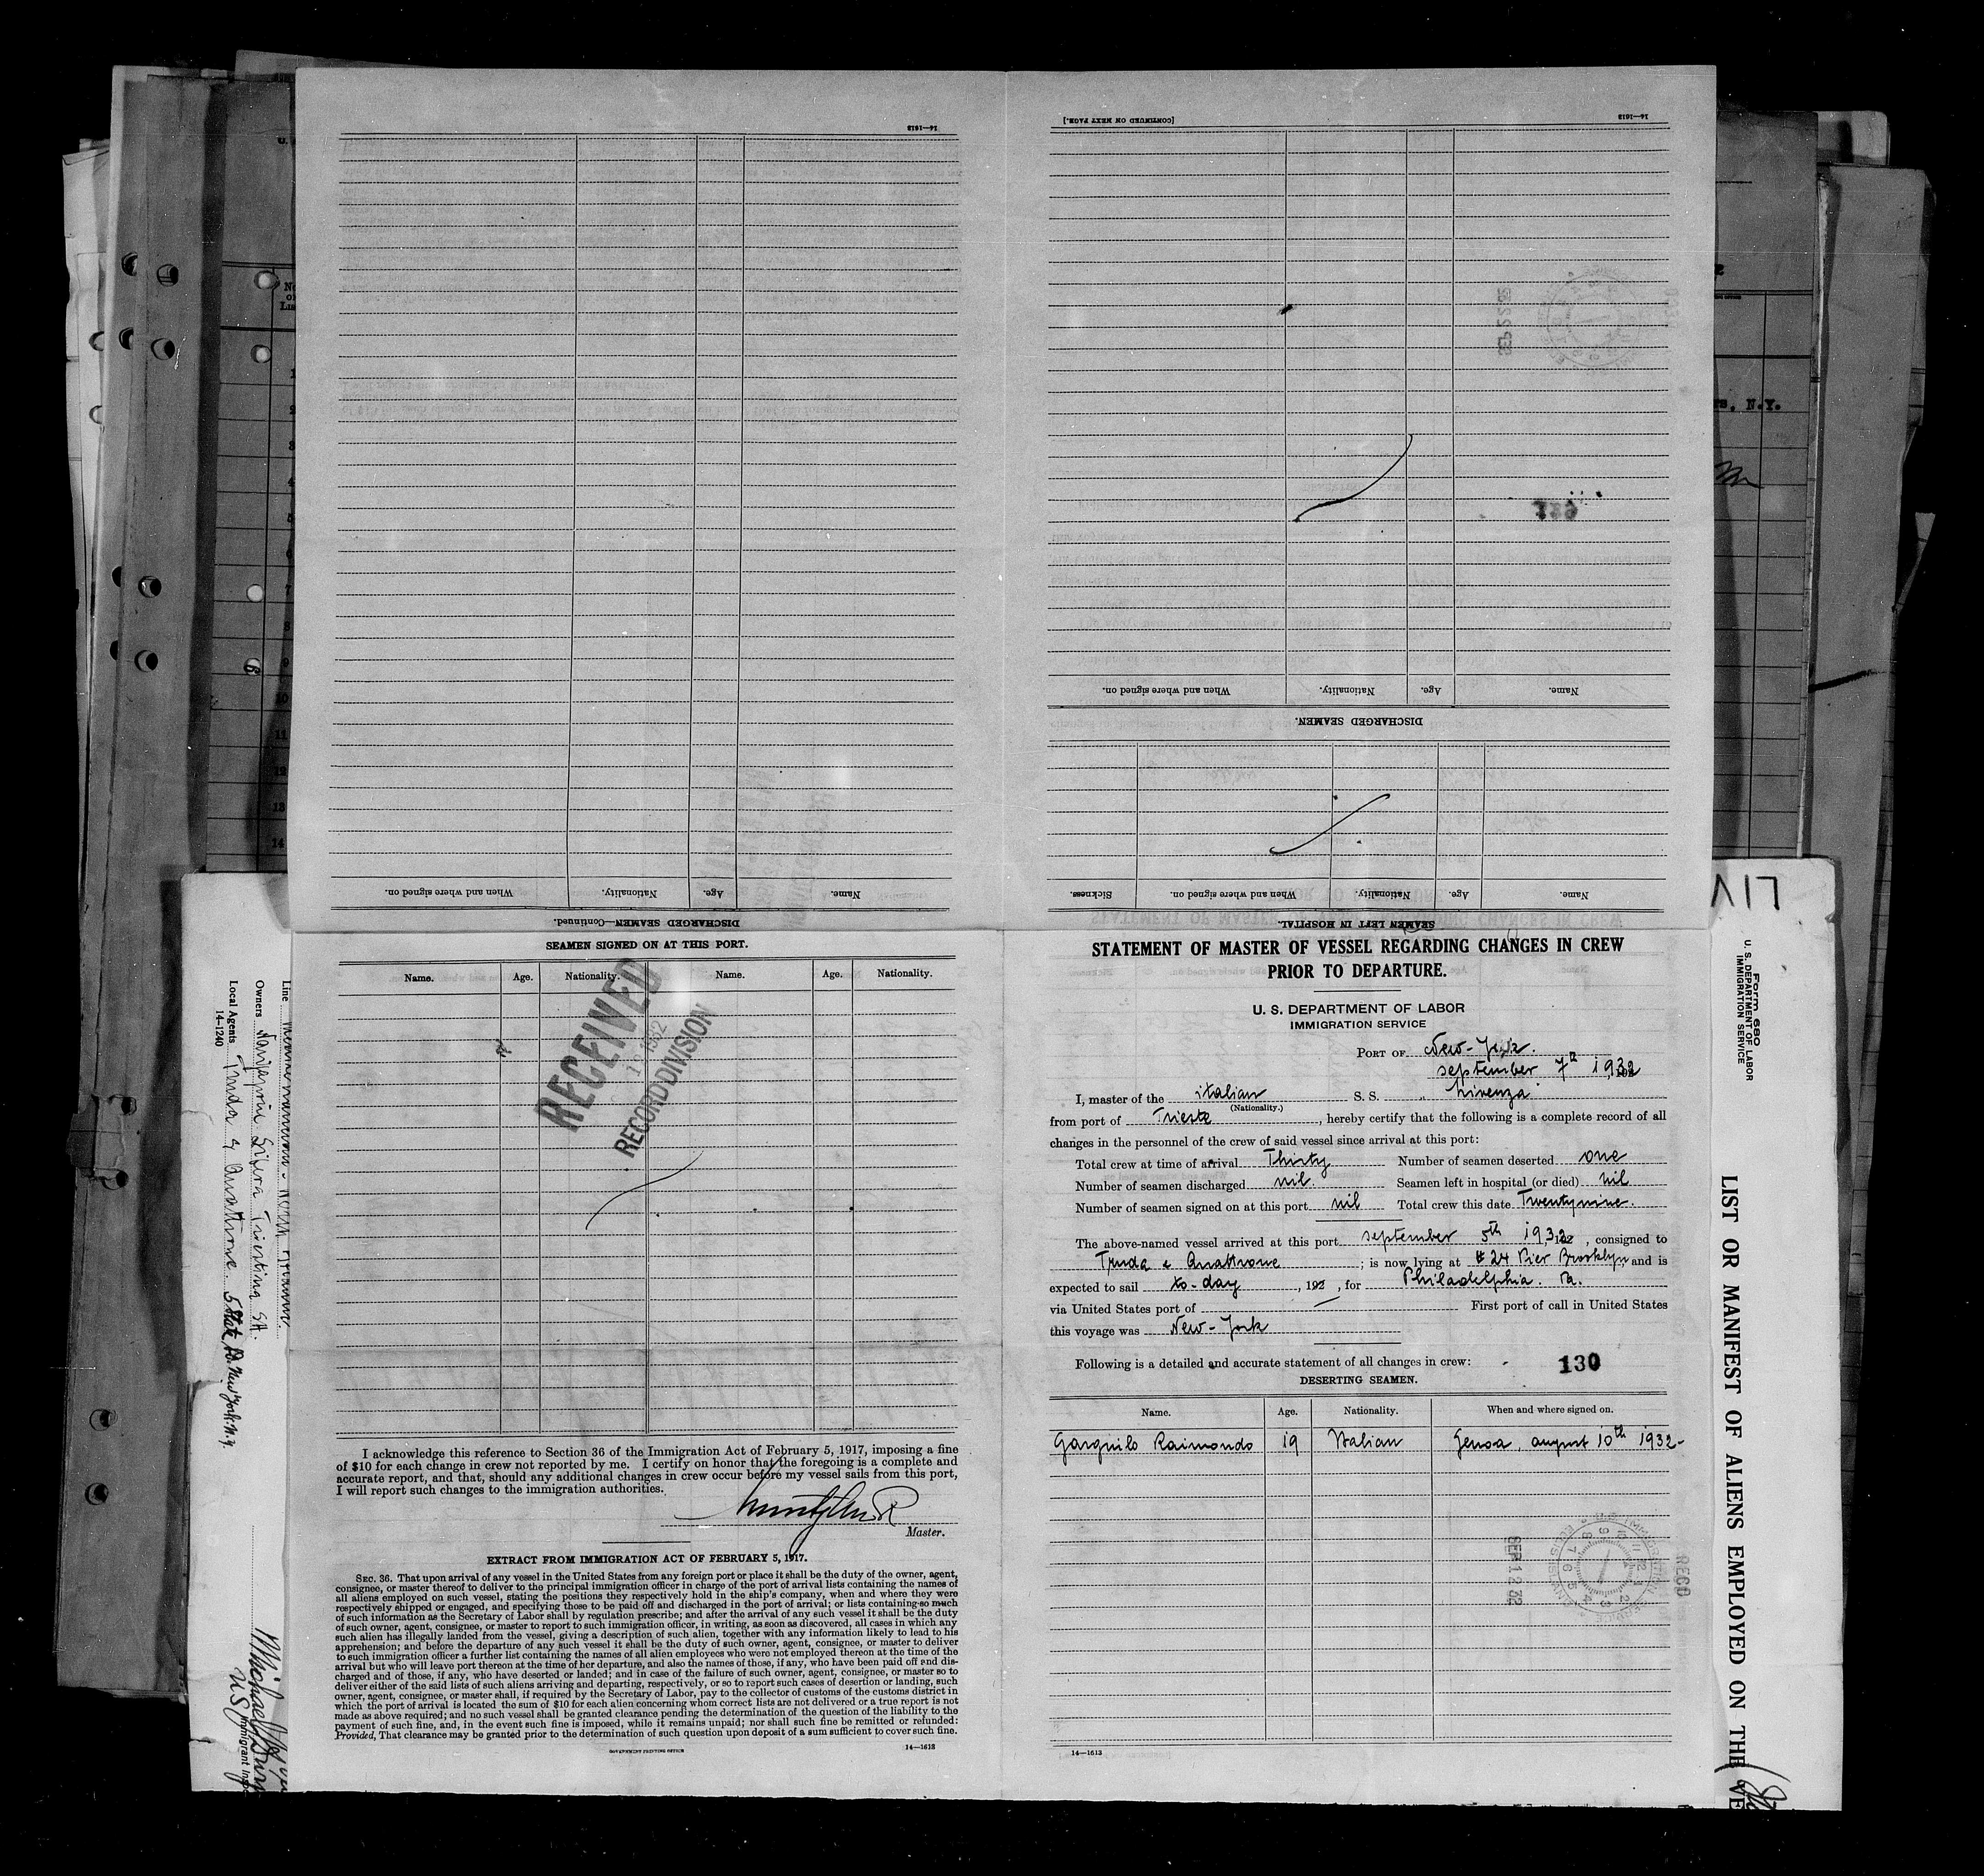 14—1613
[CONTINUED ON NEXT PAGE.]
14—1613
When and where signed on.
Nationality.
Age.
Name.
DISCHARGED SEAMEN.
Sickness.
When and where signed on.
Nationality.
Age.
Name.
SEAMEN LEFT IN HOSPITAL.
When and where signed on.
Nationality.
Age.
Name.
DISCHARGED SEAMEN—Continued.
SEAMEN SIGNED ON AT THIS PORT.
Name.
Age.
Nationality.
Name.
Age.
Nationality.
RECEIVED
1932
RECORD DIVISION
I acknowledge this reference to Section 36 of the Immigration Act of February 5, 1917, imposing a fine
of $10 for each change in crew not reported by me. I certify on honor that the foregoing is a complete and
accurate report, and that, should any additional changes in crew occur before my vessel sails from this port,
I will report such changes to the immigration authorities.
Master.
EXTRACT FROM IMMIGRATION ACT OF FEBRUARY 5, 1917.
SEC. 36. That upon arrival of any vessel in the United States from any foreign port or place it shall be the duty of the owner, agent,
consignee, or master thereof to deliver to the principal immigration officer in charge of the port of arrival lists containing the names of
all aliens employed on such vessel, stating the positions they respectively hold in the ship's company, when and where they were
respectively shipped or engaged, and specifying those to be paid off and discharged in the port of arrival; or lists containing so much
of such information as the Secretary of Labor shall by regulation prescribe; and after the arrival of any such vessel it shall be the duty
of such owner, agent, consignee, or master to report to such immigration officer, in writing, as soon as discovered, all cases in which any
such alien has illegally landed from the vessel, giving a description of such alien, together with any information likely to lead to his
apprehension; and before the departure of any such vessel it shall be the duty of such owner, agent, consignee, or master to deliver
to such immigration officer a further list containing the names of all alien employees who were not employed thereon at the time of the
arrival but who will leave port thereon at the time of her departure, and also the names of those, if any, who have been paid off and dis-
charged and of those, if any, who have deserted or landed; and in case of the failure of such owner, agent, consignee, or master so to
deliver either of the said lists of such aliens arriving and departing, respectively, or so to report such cases of desertion or landing, such
owner, agent, consignee, or master shall, if required by the Secretary of Labor, pay to the collector of customs of the customs district in
which the port of arrival is located the sum of $10 for each alien concerning whom correct lists are not delivered or a true report is not
made as above required; and no such vessel shall be granted clearance pending the determination of the question of the liability to the
payment of such fine, and, in the event such fine is imposed, while it remains unpaid; nor shall such fine be remitted or refunded:
Provided, That clearance may be granted prior to the determination of such question upon deposit of a sum sufficient to cover such fine.
GOVERNMENT PRINTING OFFICE
14—1613
STATEMENT OF MASTER OF VESSEL REGARDING CHANGES IN CREW
PRIOR TO DEPARTURE.
U. S. DEPARTMENT OF LABOR
IMMIGRATION SERVICE
PORT OF New-York.
september 7th 1932
I, master of the italian S. S. "Livenza"
(Nationality.)
from port of Trieste, hereby certify that the following is a complete record of all
changes in the personnel of the crew of said vessel since arrival at this port:
Total crew at time of arrival Thirty Number of seamen deserted one
Number of seamen discharged nil Seamen left in hospital (or died) nil
Number of seamen signed on at this port nil Total crew this date Twentynine.
The above-named vessel arrived at this port september 5th 1932, consigned to
Truda e Quattrone; is now lying at # 24 Pier Brooklyn, and is
expected to sail to-day, 192 , for Philadelphia. Pa.
via United States port of — First port of call in United States
this voyage was New-York
Following is a detailed and accurate statement of all changes in crew:
130
DESERTING SEAMEN.
Name. Age. Nationality. When and where signed on.
Garguilo Raimondo 19 Italian Genoa, august 10th 1932-
SEP 12 32
RECD
14—1613
Line
Owners Navigazione Libera Triestina SA.
Local Agents Truda & Quattrone. 5 State St. New York. N.Y.
14-1240
Form 680
U. S. DEPARTMENT OF LABOR
IMMIGRATION SERVICE
LIST OR MANIFEST OF ALIENS EMPLOYED ON THE VE
, N.Y.